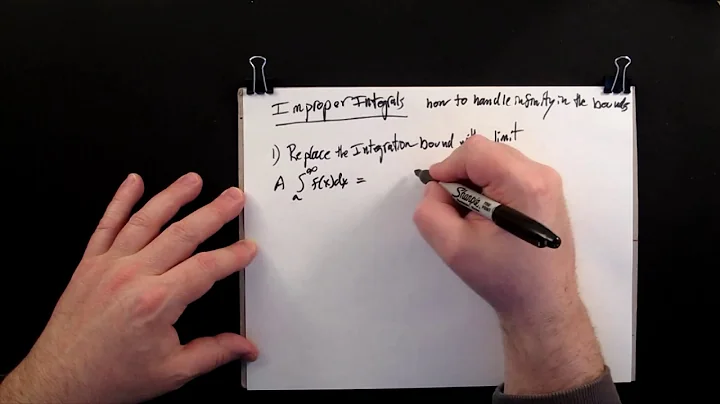 Improper Integrals how to handle infinity in the bounds
1) Replace the Integration bound with limit
A ∫ₐ^∞ f(x)dx =
Sharpie